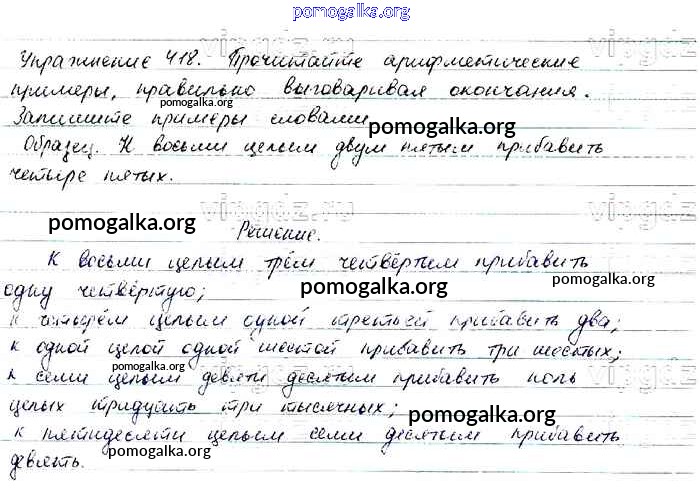 pomogalka.org
Упражнение 418. Прочитайте арифметические
примеры, правильно выговаривая окончания.
pomogalka.org
Запишите примеры словами.
pomogalka.org
Образец. К восьми целым двум пятым прибавить
четыре пятых.
vipgdz.ru
pomogalka.org
Решение.
К восьми целым трём четвёртым прибавить
pomogalka.org
одну четвёртую;
pomogalka.org
к четырём целым одной третьей прибавить два;
к одной целой одной шестой прибавить три шестых;
pomogalka.org
к семи целым девяти десятым прибавить ноль
целых тридцать три тысячных;
pomogalka.org
к пятидесяти целым семи десятым прибавить
pomogalka.org
девять.